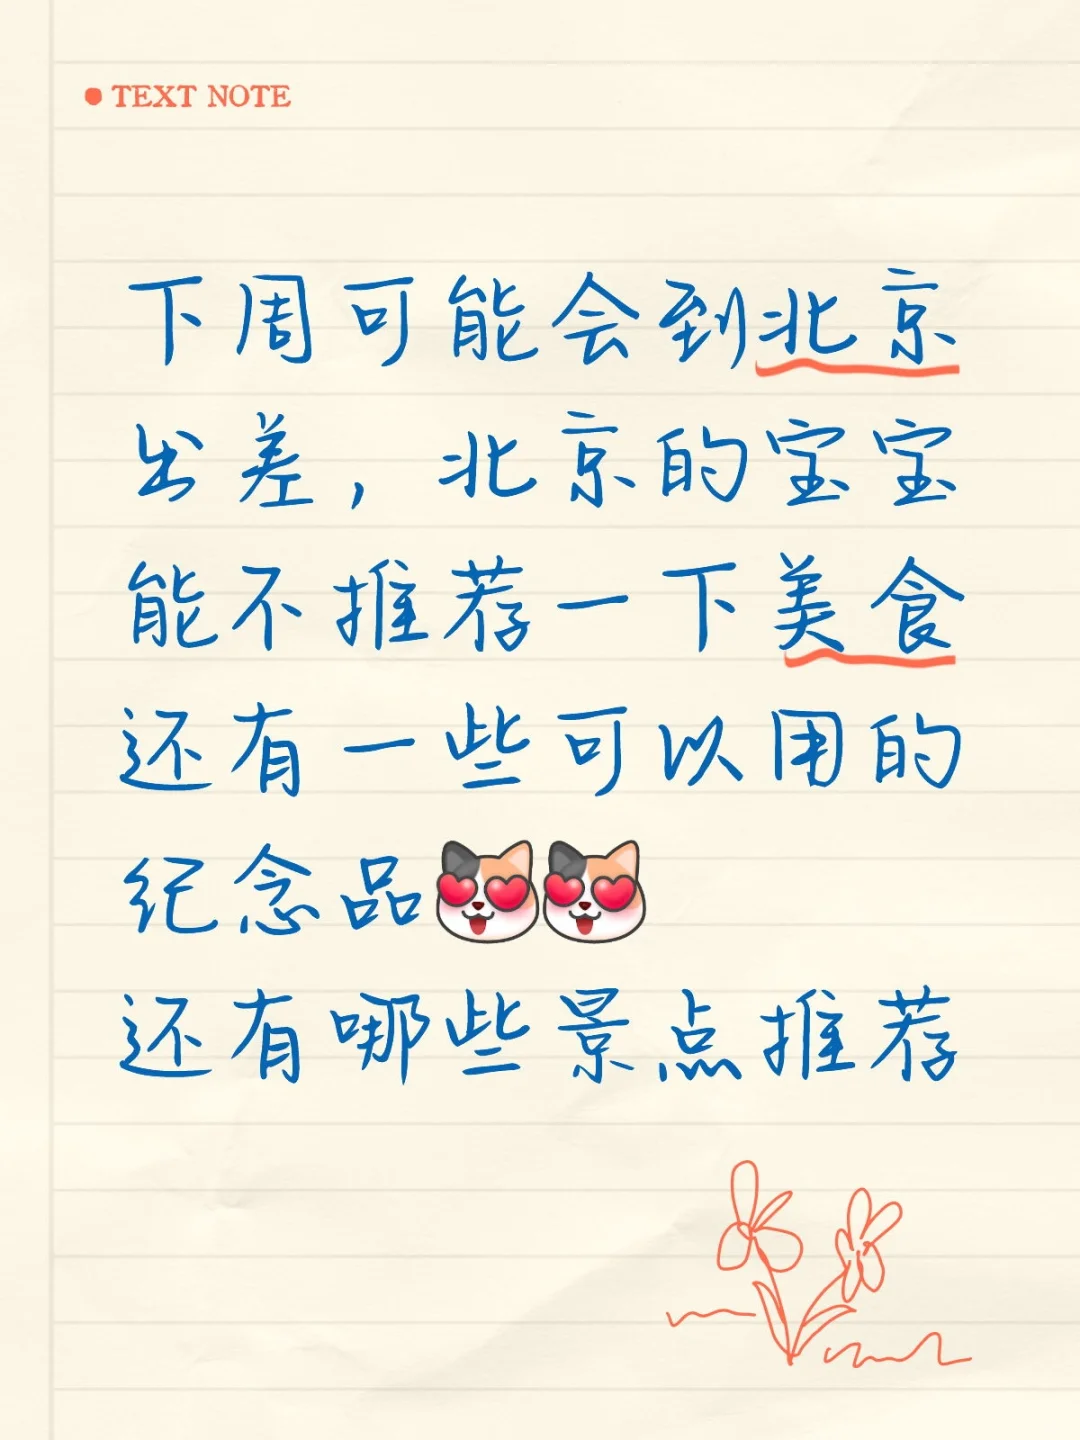 TEXT NOTE
下周可能会到北京
出差，北京的宝宝
能不推荐一下美食
还有一些可以用的
纪念品
还有哪些景点推荐